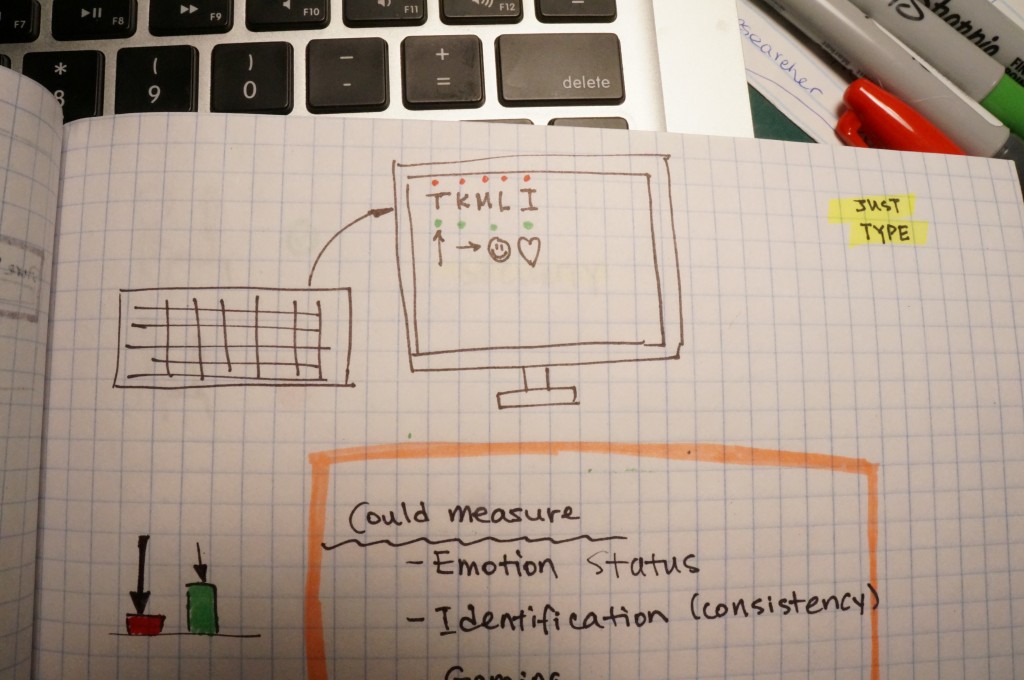 F7
F8
F9
F10
F11
F12
*
8
(
9
)
0
-
-
+
=
delete
searcher
T K M L I
JUST
TYPE
Could measure
- Emotion Status
- Identification (consistency)
Gaming